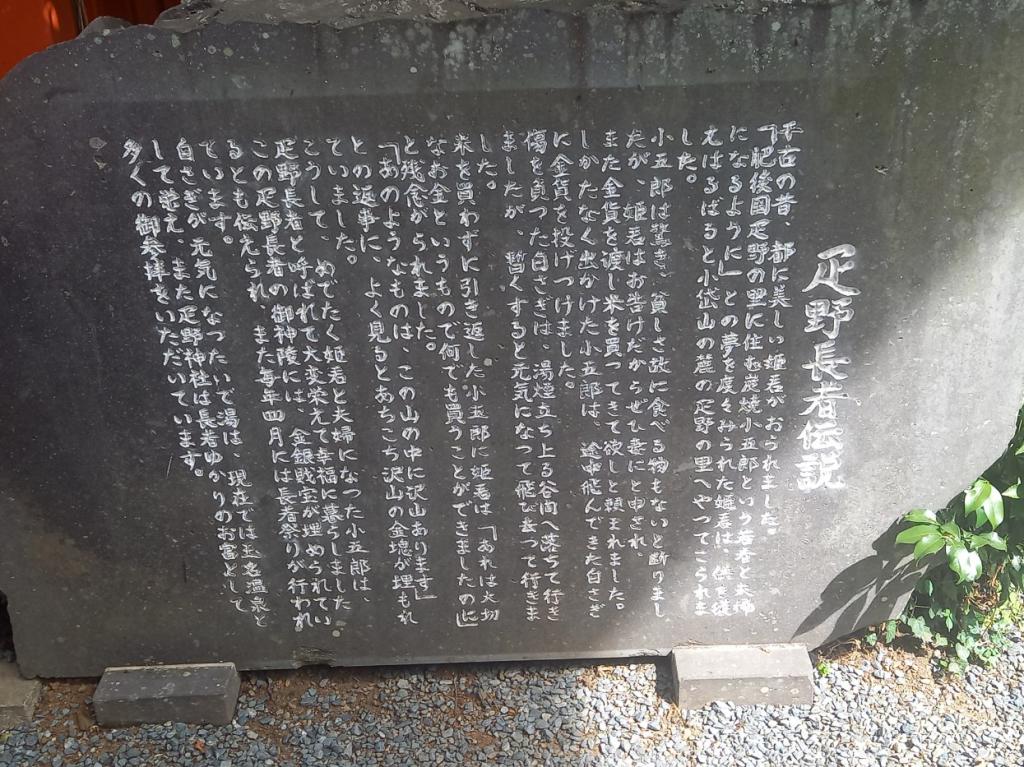 疋野長者伝説
千古の昔、都に美しい姫君がおられました。
「肥後国疋野の里に住む炭焼小五郎という若者と夫婦
になるように」との夢を度々みられた姫君は、供を従
えはるばると小岱山の麓の疋野の里へやってこられま
した。
小五郎は驚き、貧しさ故に食べる物もないと断りまし
たが、姫君はお告げだからぜひ妻にと申され
また金貨を渡し米を買ってきて欲しと頼まれました。
しかたなく出かけた小五郎は、途中飛んできた白さぎ
に金貨を投げつけました。
傷を負った白さぎは、湯煙立ち上る谷間へ落ちて行き
ましたが、暫くすると元気になって飛び去って行きま
した。
米を買わずに引き返した小五郎に姫君は「あれは大切
なお金というもので何でも買うことができましたのに」
と残念がられました。
「あのようなものは、この山の中に沢山あります」
との返事に、よく見るとあちこち沢山の金塊が埋もれ
ていました。
こうして、めでたく姫君と夫婦になった小五郎は
疋野長者と呼ばれて大変栄えて幸福に暮らしました
この疋野長者の御神陵には、金銀財宝が埋められてい
るとも伝えられ、また毎年四月には長者祭りが行われ
ています。
白さぎが元気になったいで湯は、現在では玉名温泉と
して栄え、また疋野神社は長者ゆかりのお宮として
多くの御参拝をいただいています。